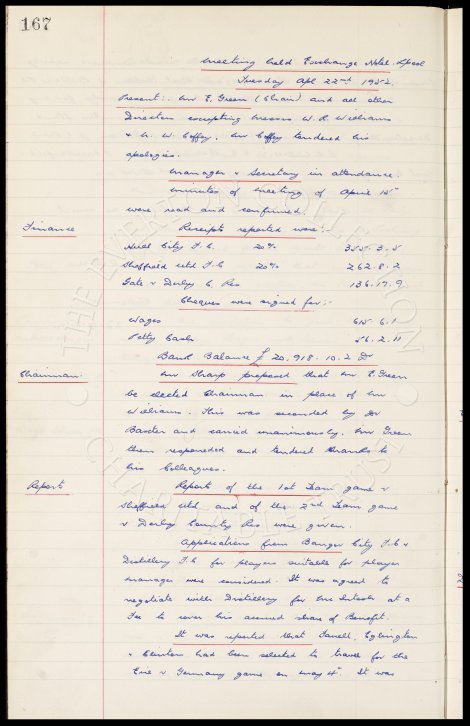 167
Meeting held Exchange Hotel, L'pool
Tuesday Apl 22nd 1952.
Present:- Mr E. Green (Chair) and all other
Directors excepting Messrs W. R. Williams
& N. W. Coffey, Mr Coffey tendered his
apologies.
Manager & Secretary in attendance.
Minutes of meeting of April 15th
were read and confirmed.
Finance Receipts reported were:-
Hull City F.C. 20% 355.3.5
Sheffield Utd F.C 20% 262.8.2
Gate v Derby C. Res 136.17.9
Cheques were signed for:-
Wages 615.6.1
Petty Cash 56.2.11
Bank Balance £20,918.10.2 Dr
Chairman. Mr Sharp proposed that Mr E. Green
be elected Chairman in place of Mr
Williams. This was seconded by Dr
Baxter and carried unanimously. Mr Green
then responded and tendered thanks to
his Colleagues.
Report Report of the 1st Team game v
Sheffield Utd and of the 2nd Team game
v Derby County Res were given.
Applications from Bangor City F.C &
Distillery F.C for players suitable for player
manager were considered. It was agreed to
negotiate with Distillery for at a
Fee to cover his accrued share of Benefit.
It was reported that Farrell, Eglington
& Clinton had been selected to travel for the
Eire v Germany game on May 4th. It was
THE EVERTON COLLECTION
CHARITABLE TRUST